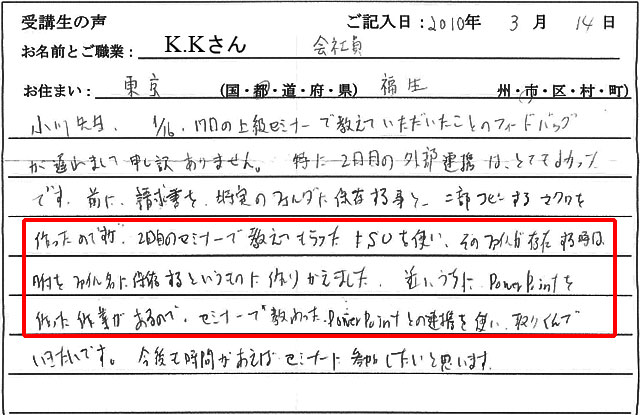 受講生の声 ご記入日:2010年 3月 14日
お名前とご職業: K.Kさん 会社員
お住まい: 東京 (国・都・道・府・県) 福生 州・市・区・村・町)
小川先生、1/16、17日の上級セミナーで教えていただいたことのフィードバッグ
が遅れまして申し訳ありません。特に2日目の外部連携は、とてもよかった
です。前に、請求書を、特定のフォルダに保存する事と、二部コピーするマクロを
作ったのですが、2日目のセミナーで教えてもらったFSOを使い、そのファイルが存在する時は
付をファイル名に保存するというものに作りかえました。近いうちに、PowerPointを
作った作業があるので、セミナーで教わったPowerPointとの連携を使い、取りくんで
いきたいです。今後も時間があえばセミナーに参加したいと思います。